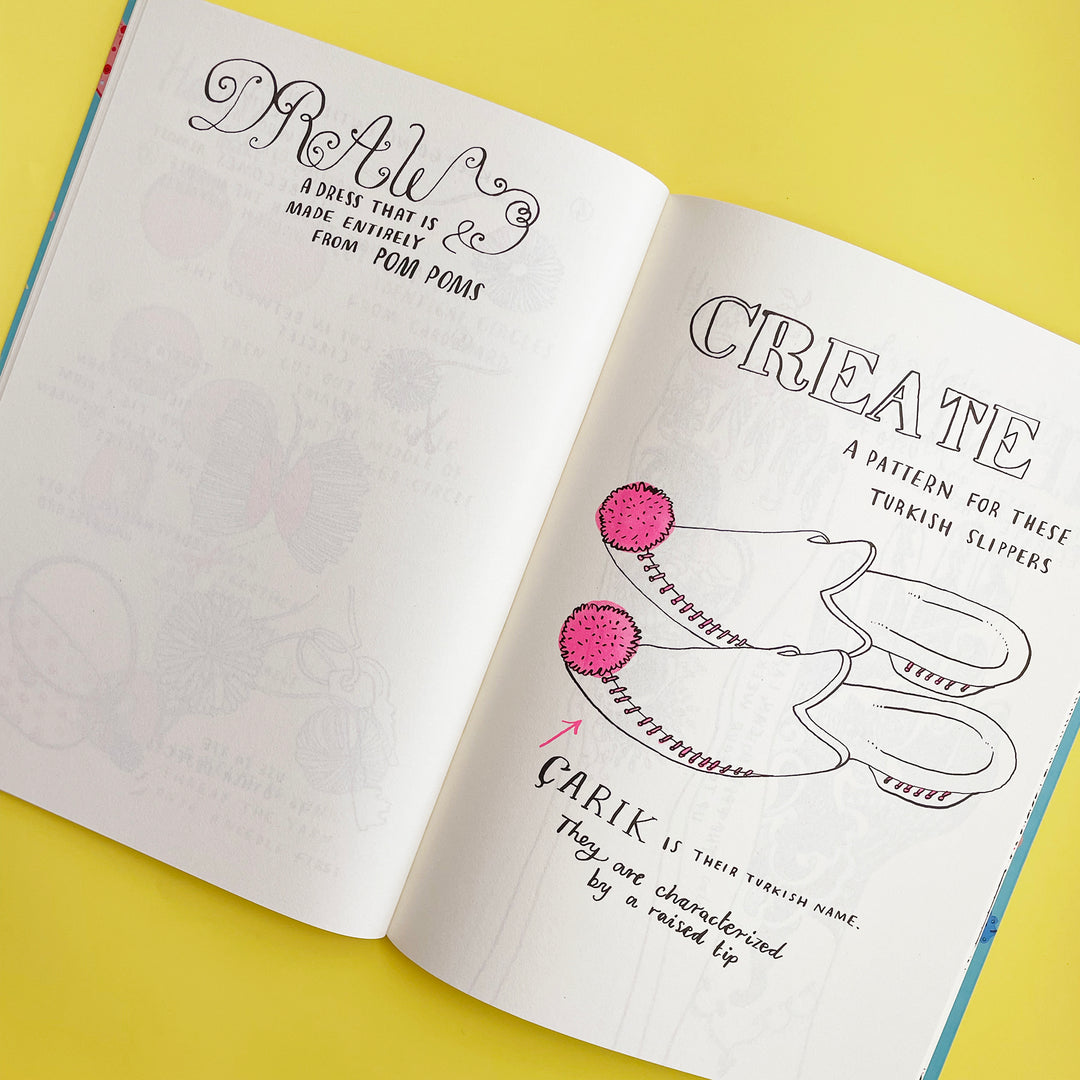 DRAW
A DRESS THAT IS
MADE ENTIRELY
FROM POM POMS
CREATE
A PATTERN FOR THESE
TURKISH SLIPPERS
ÇARIK IS THEIR TURKISH NAME.
They are characterized
by a raised tip